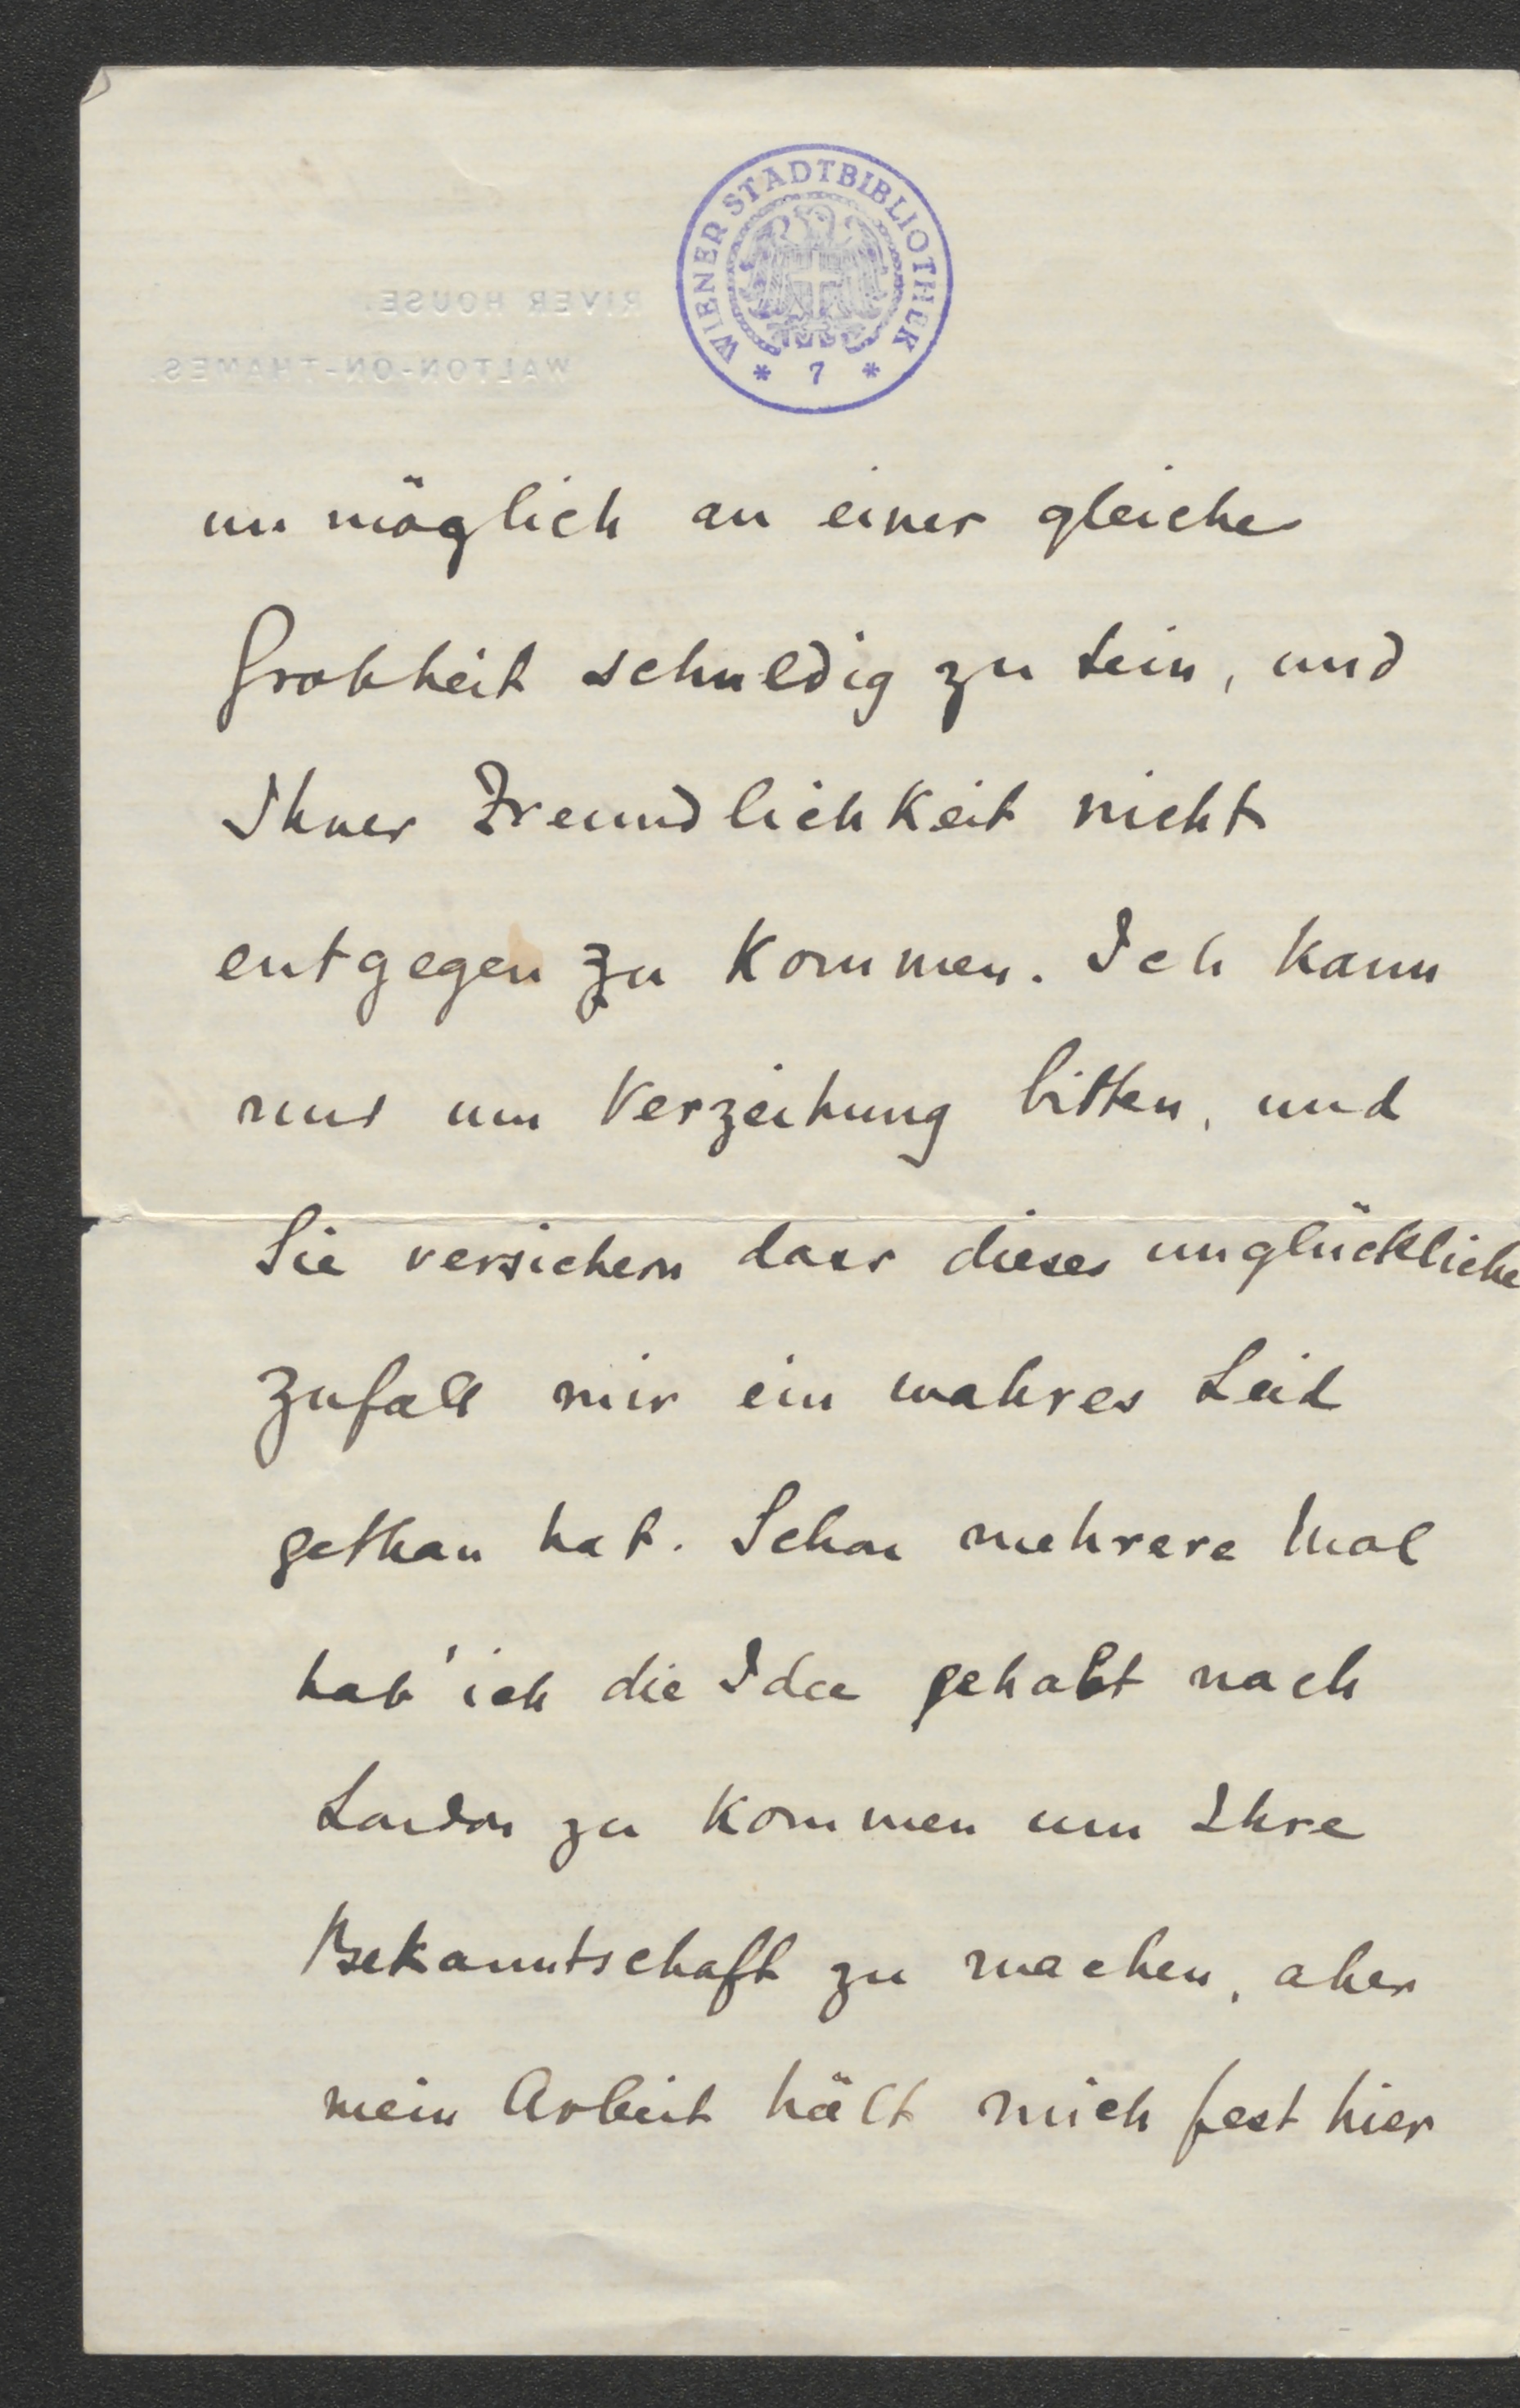 WIENER STADTBIBLIOTHEK
* 7 *
RIVER HOUSE.
WALTON-ON-THAMES.
un möglich an einer gleiche
Grobheit schuldig zu sein, und
Ihner Freundlichkeit nicht
entgegen zu kommen. Ich kann
nur um Verzeihung bitten, und
Sie versichern dass dieses unglückliche
Zufall mir ein wahres Leid
gethan hat. Schon mehrere Mal
hab' ich die Idee gehabt nach
London zu kommen um Ihre
Bekanntschaft zu machen, aber
mein Arbeit hält mich fest hier